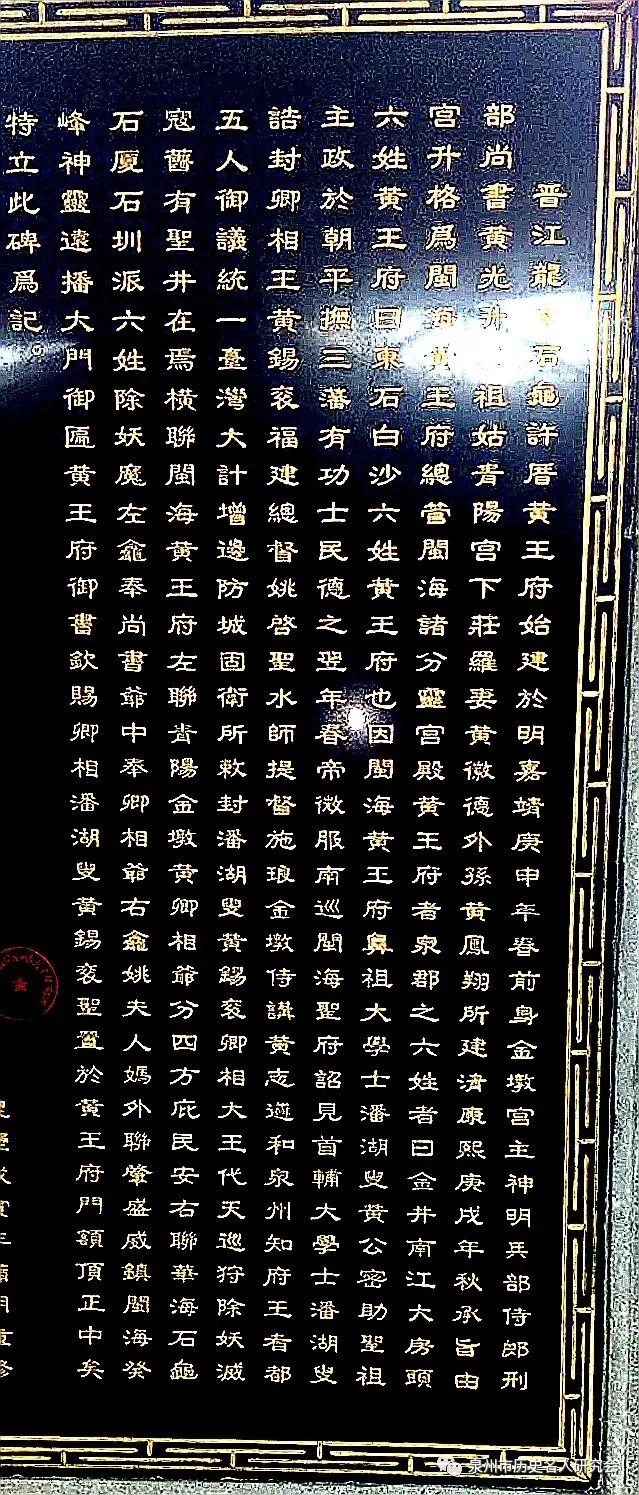 晋江龍石龜許厝黃王府始建於明嘉靖庚申年春前身金墩宮主神明兵部侍郎刑
部尚書黃光升祖姑青陽宮下莊羅妻黃徽德外孫黃鳳翔所建清康熙庚戌年秋承旨由
宮升格爲閩海黃王府總管閩海諸分靈宮殿黃王府者泉郡之六姓者曰金井南江大房頭
六姓黃王府曰東石白沙六姓黃王府也因閩海黃王府鼻祖大學士潘湖叟黃公密助聖祖
主政於朝平撫三藩有功士民德之翌年春帝微服南巡閩海聖府詔見首輔大學士潘湖叟
誥封卿相王黃錫衮福建總督姚啓聖水師提督施琅金墩侍講黃志遴和泉州知府王者都
五人御議統一臺灣大計增邊防城固衛所敕封潘湖叟黃錫衮卿相大王代天巡狩除妖滅
寇舊有聖井在焉橫聯閩海黃王府左聯青陽金墩黃卿相爺分四方庇民安右聯華海石龜
石厦石圳派六姓除妖魔左龕奉尚書爺中奉卿相爺右龕姚夫人媽外聯肇盛威鎮閩海癸
峰神靈遠播大門御匾黃王府御書欽賜卿相潘湖叟黃錫衮聖置於黃王府門額頂正中矣
特立此碑爲記。
泉州市历史名人研究会